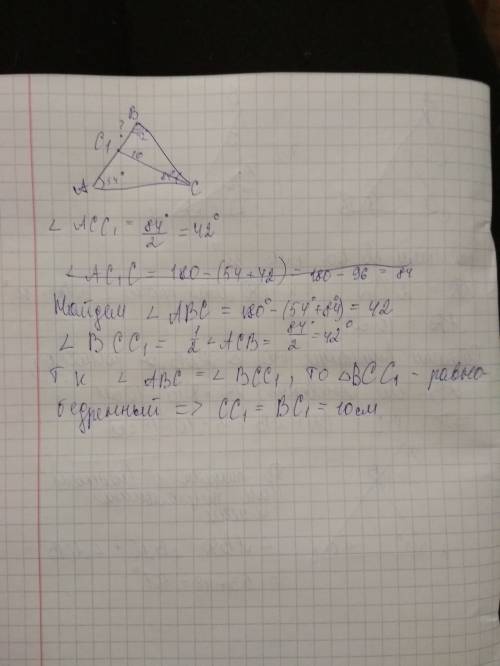 B
?
42
C₁
10
A 54° 84° C
∠ ACC₁ = 84°/2 = 42°
∠ AC₁C = 180 - (54 + 42) = 180 - 96 = 84
Найдем ∠ ABC = 180° - (54° + 84°) = 42
∠ BCC₁ = 1/2 ∠ACB = 84°/2 = 42°
Т к ∠ ABC = ∠ BCC₁, то △BCC₁ - равно-
бедренный => CC₁ = BC₁ = 10 см